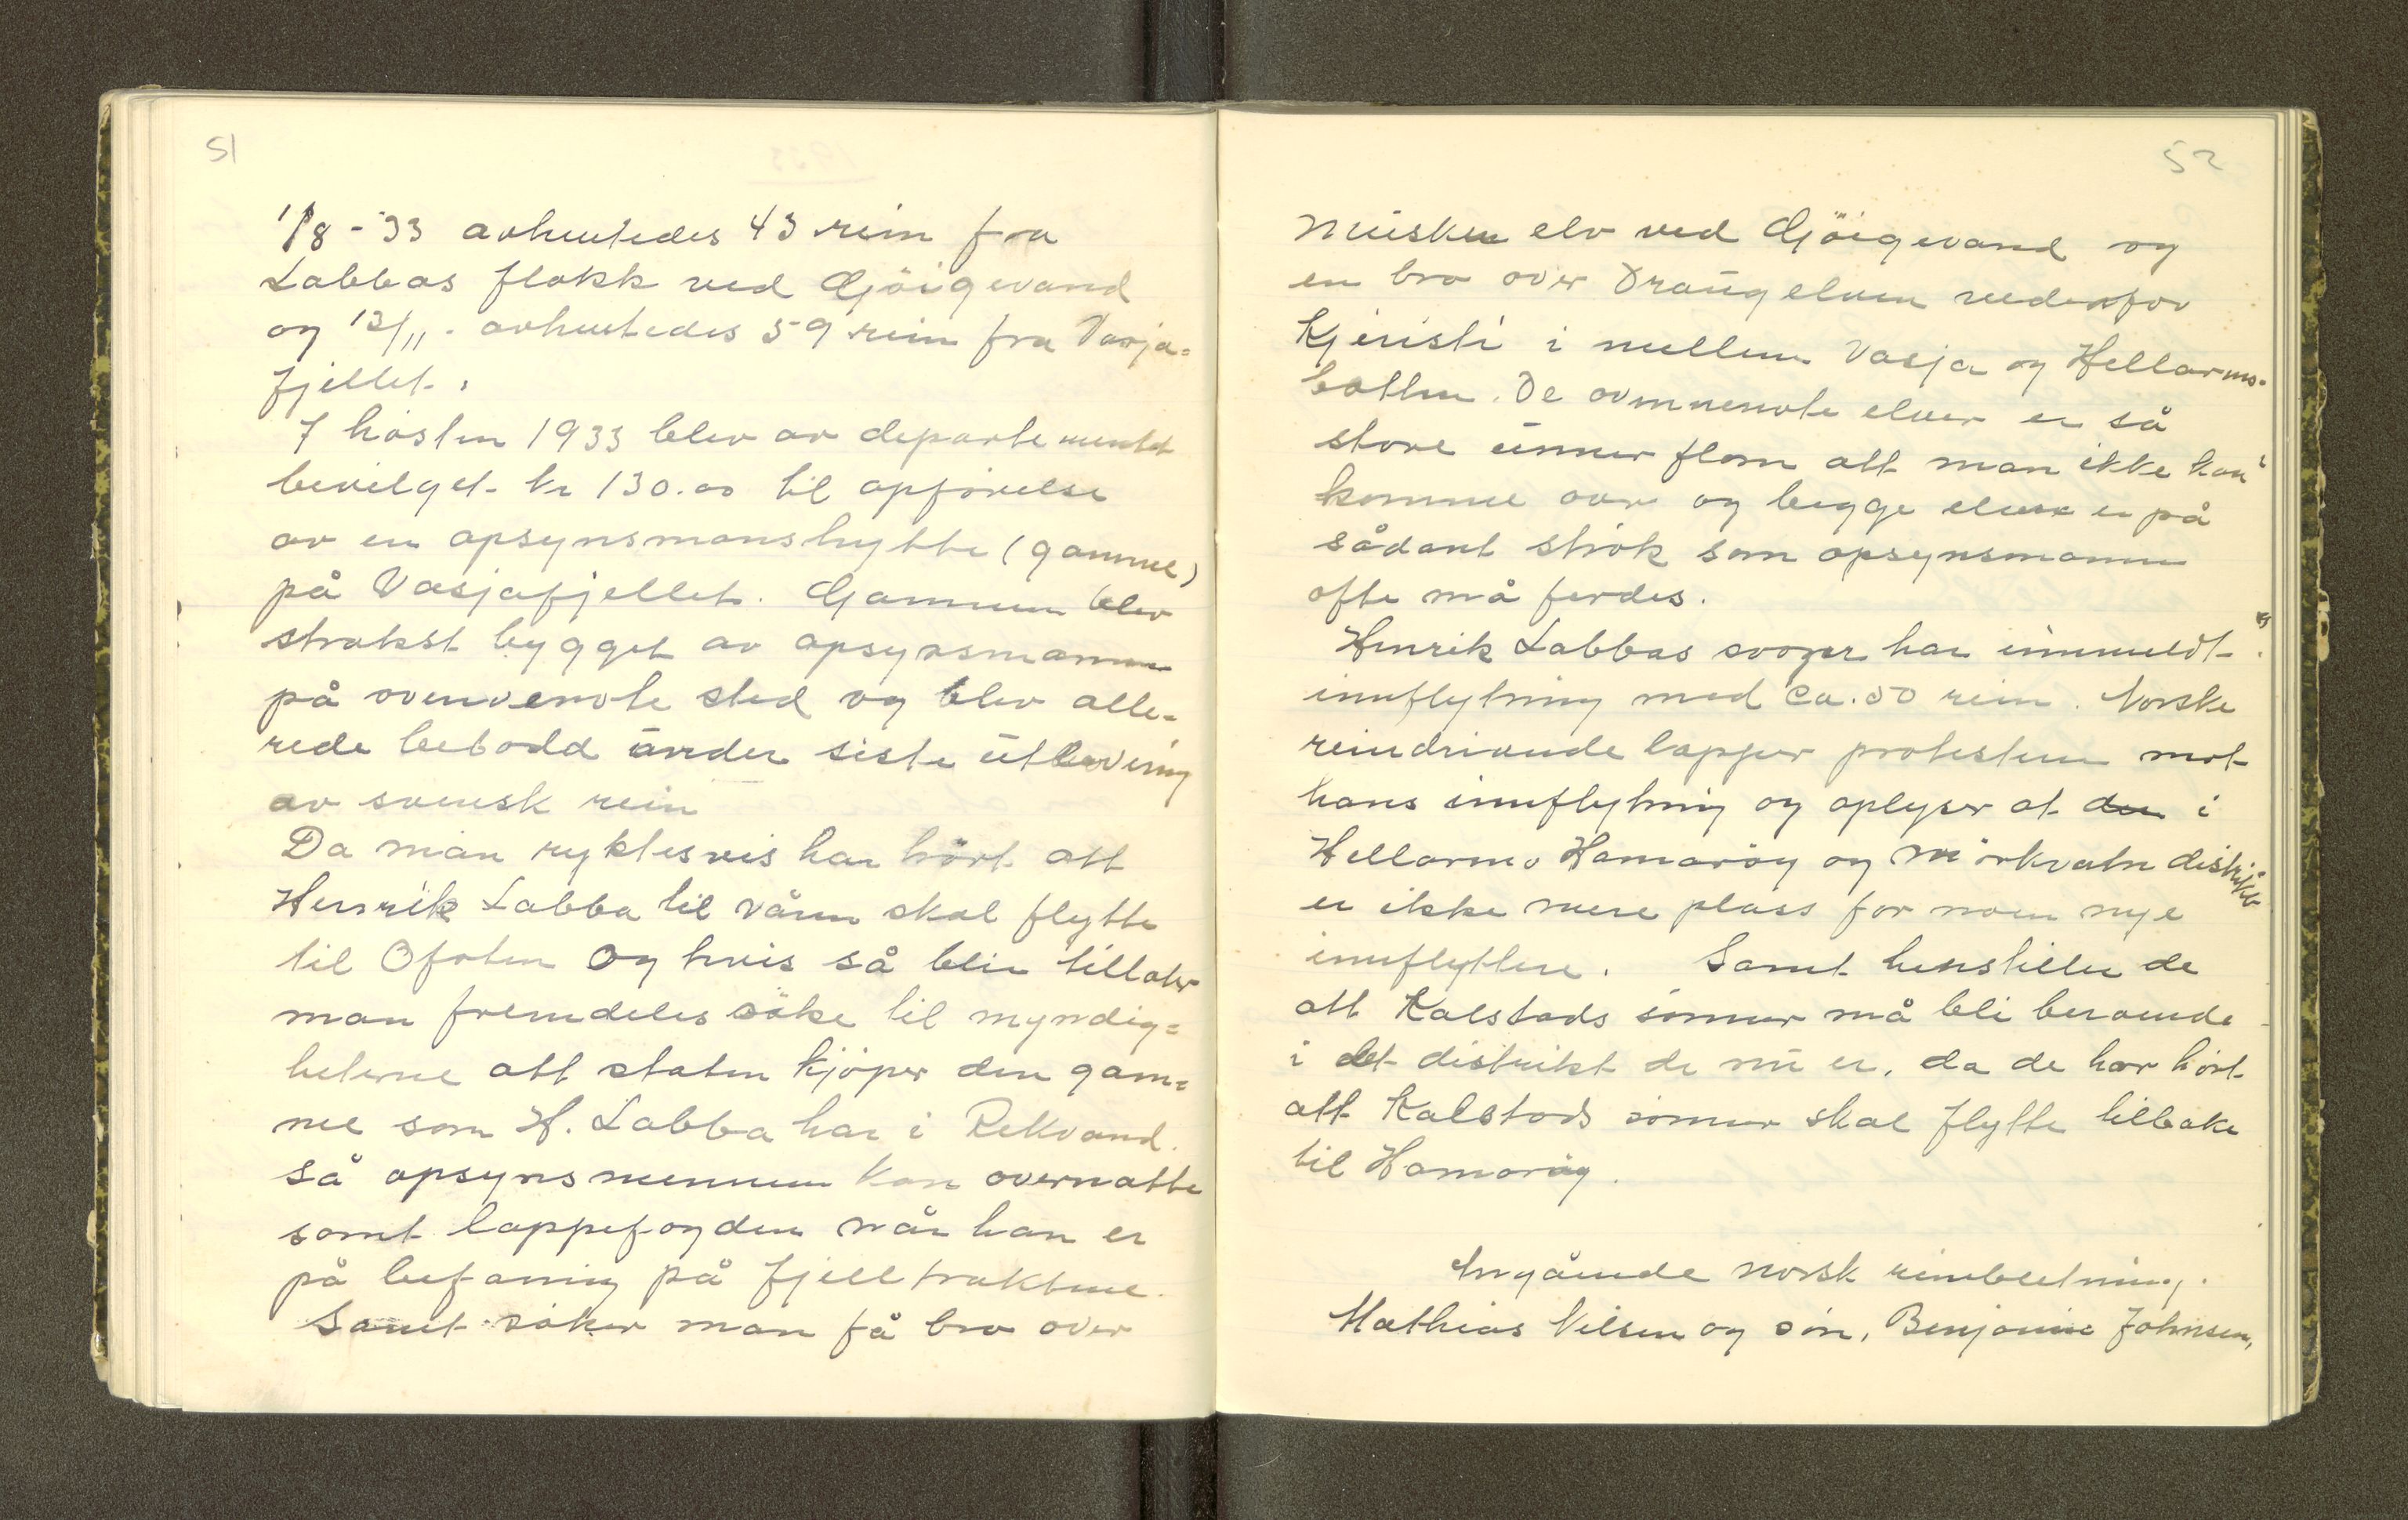 51
1/8 - 33 avhentedes 43 rein fra
Labbas flokk ved Gjöigevand
og 12/11. avhentedes 59 rein fra Vasja=
fjellet.
I hösten 1933 blev av departementet
bevilget kr 130.00 til opförelse
av en opsynsmanshytte (gamme)
på Vasjafjellet. Gammen blev
strakst bygget av opsynsmannen
på ovenvente sted og blev alle=
rede bebodd under siste utlevering
av svensk rein
Da man ryktesvis har hört att
Henrik Labba til våren skal flytte
til Ofoten og hvis så blir tillater
man fremdeles söke til myndig=
heterne att staten kjöper den gam=
me som H. Labba har i Rekvand.
så opsynsmennene kan overnatte
samt lappefogden når han er
på befaring på fjelltraktene.
Samt söker man få bro over
52
Müsken elv ved Gjöigevand og
en bro over Draugelven nedenfor
Kjeristi i mellem Vasja og Hellarmo-
botten. De ovennevnte elver er så
store unner flom att man ikke kan
komme over og begge elver er på
sådant strök som opsynsmannen
ofte må ferdes.
Henrik Labbas svoger har innmeldt
innflytning med ca. 50 rein. Norske
reindrivende lapper protesterer mot
hans innflytning og oplyser at den i
Hellarmo Hamaröy og Mörkvatn distrikt
er ikke mere plass for noen nye
innflyttere. Samt henstiller de
att Kalstads sönner må bli beroende
i det distrikt de nu er, da de har hört
att Kalstads sönner skal flytte tilbake
til Hamaröy.
Angående norsk reinbeitning.
Mathias Nilsen og sön, Benjamin Johnsen,